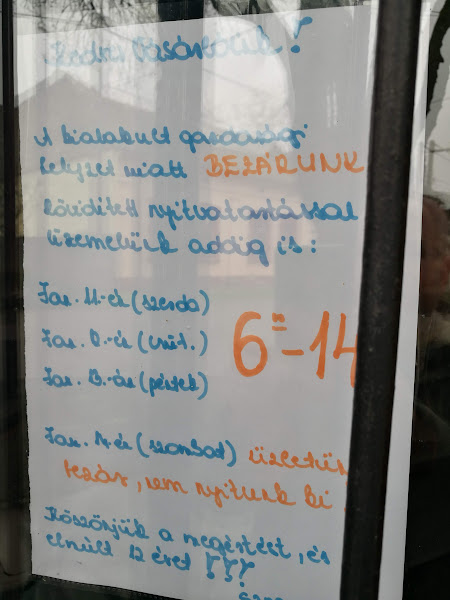 Kedves Vásárlóink!
A kialakult gazdasági
helyzet miatt BEZÁRUNK
Rövidített nyitvatartással
üzemelünk addig is:
Jan. 11.-én (szerda)
Jan. 12.-én (csüt.)
Jan. 13.-án (péntek)
6=-14
Jan. 14.-én (szombat) üzletünk
bezár, nem nyitunk ki.
Köszönjük a megértést, és
elmúlt 12 évet !!!